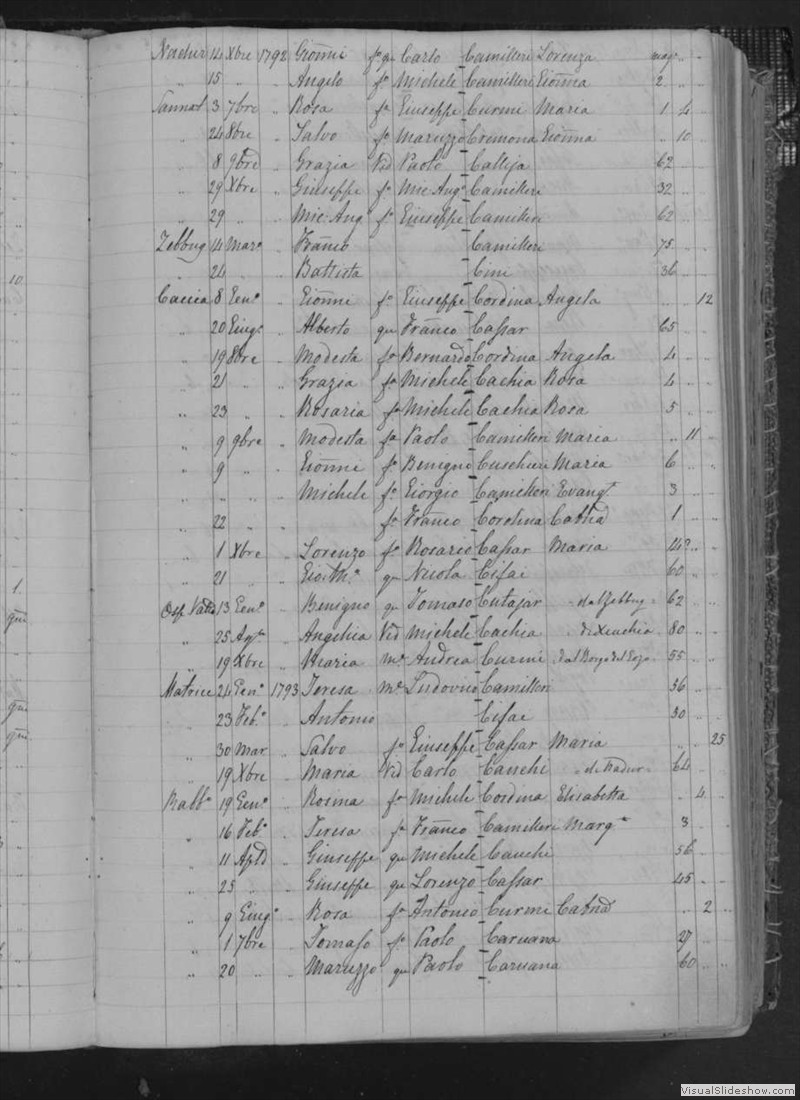 10
1.
Nadur 14 Xbre 1792 Gionni fo qu Carlo Camilleri Lorenza
" 15 " " Angelo fo Michele Camilleri Gionna 2 " "
Sannat 3 7bre " Rosa fa Giuseppe Curmi Maria 1 4
" 24 8bre " Salvo fo Maruzzo Cremona Gionna " 10
" 8 9bre " Grazia Vid Paolo Callija 62 " "
" 29 Xbre " Giuseppe fo Mic: Ang° Camilleri 32 " "
" 29 " " Mic: Ang° fo Giuseppe Camilleri 62 " "
Zebbug 14 Mar° " Franco Camilleri 75 " "
" 24 " " Battista Cini 36 " "
Caccia 8 Gen° " Gionni fo Giuseppe Cordina Angela " " 12
" 20 Giug° " Alberto qu Franco Cassar 65 " "
" 19 8bre " Modesta fa Bernardo Cordina Angela 4 " "
" 21 " " Grazia fa Michele Cachia Rosa 4 " "
" 23 " " Rosaria fa Michele Cachia Rosa 5 " "
" 9 9bre " Modesta fa Paolo Camilleri Maria " 11 "
" 9 " " Gionni fo Benigno Cuschieri Maria 6 " "
" " " " Michele fo Giorgio Camilleri Evang° 3 " "
" 22 " " fo Franco Cordina Catna 1 " "
" 1 Xbre " Lorenzo fo Rosario Cassar Maria 4? " "
" 21 " " qu Nicola Cifai 60 " "
Osp. 13 Gen° " Benigno qu Tomaso Cutajar dal Zebbug 62 " "
" 25 " Angelica Vid Michele Cachia di Xeuchia 80 " "
" 19 Xbre " Maria me Andrea Curmi dal Borgo del Gozo 55 " "
Matrice 24 Gen° 1793 Teresa me Ludovico Camilleri 36 " "
" 23 Feb° " Antonio Cifai 30 " "
" 30 Mar " Salvo fo Giuseppe Cassar Maria " " 25
" 19 Xbre " Maria Vid Carlo Cauchi di Nadur 64 " "
Rabb° 19 Gen° " Rosina fa Michele Cordina Elisabetta " 4 "
" 16 Feb° " Teresa fa Franco Camilleri Marga 3 " "
" 11 Aple " Giuseppe qu Michele Cauchi 56 " "
" 25 " " Giuseppe qu Lorenzo Cassar 45 " "
" 9 Giug° " Rosa fa Antonio Curmi Catna " 2 "
" 1 7bre " Tomaso fo Paolo Caruana 27 " "
" 20 " " Maruzzo qu Paolo Caruana 60 " "
VisualSlideshow.com